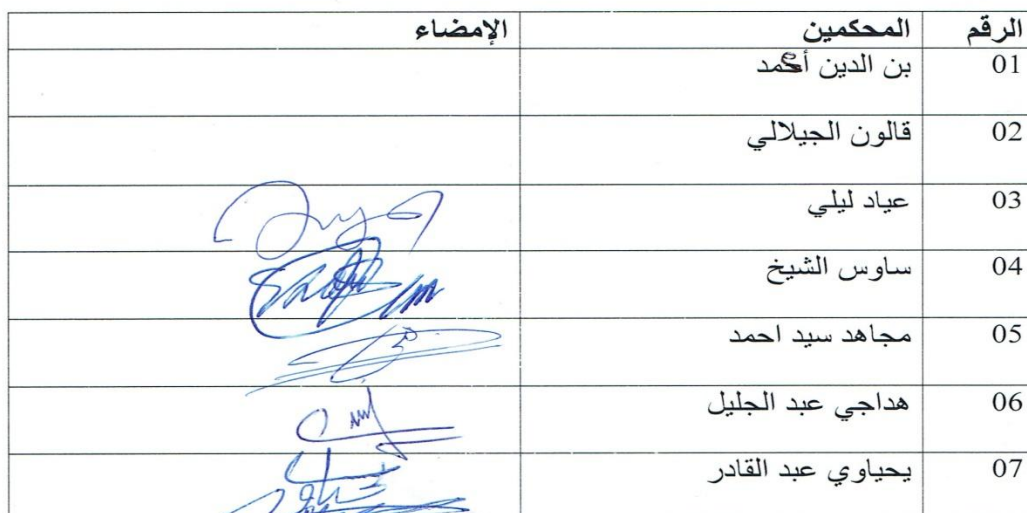 الرقم المحكمين الإمضاء
01 بن الدين أحمد
02 قالون الجيلالي
03 عياد ليلي
04 ساوس الشيخ
05 مجاهد سيد احمد
06 هداجي عبد الجليل
07 يحياوي عبد القادر